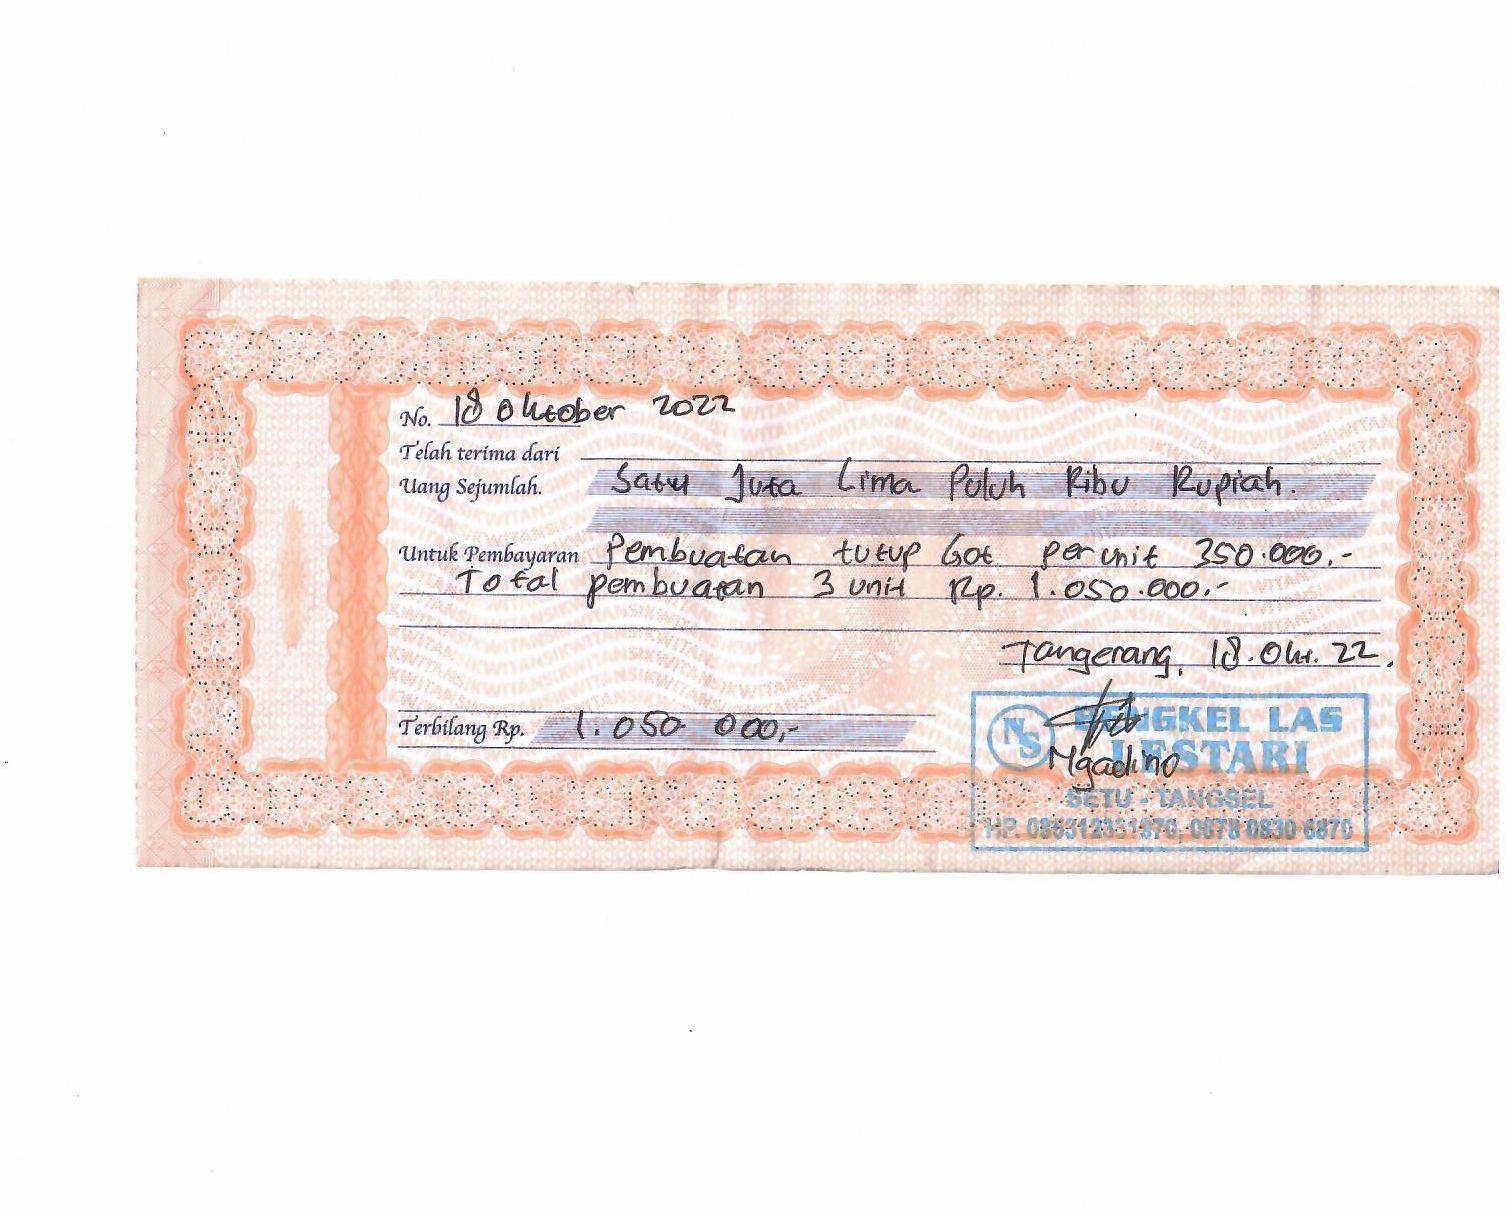 No. 18 Oktober 2022
Telah terima dari
Uang Sejumlah. Satu Juta Lima Puluh Ribu Rupiah.
Untuk Pembayaran Pembuatan tutup Got per unit 350.000.-
Total pembuatan 3 unit Rp. 1.050.000.-
Tangerang, 18.Okt. 22.
Terbilang Rp. 1.050 000,-
NS BENGKEL LAS
LESTARI
Ngadino
SETU - TANGSEL
HP.